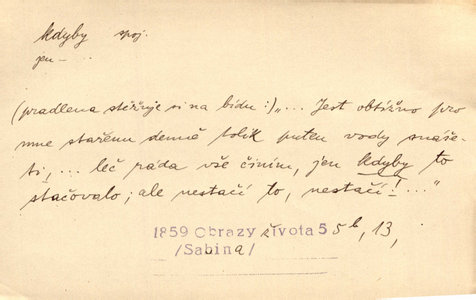 kdyby spoj.
jen – ...
(pradlena stěžuje si na bídu:) „... Jest obtížno pro
mne starému denně tolik puten vody snáše-
ti, ... leč ráda vše činím, jen kdyby to
stačovalo; ale nestačí to, nestačí! ..."
1859 Obrazy života 5 5b, 13,
/Sabina/